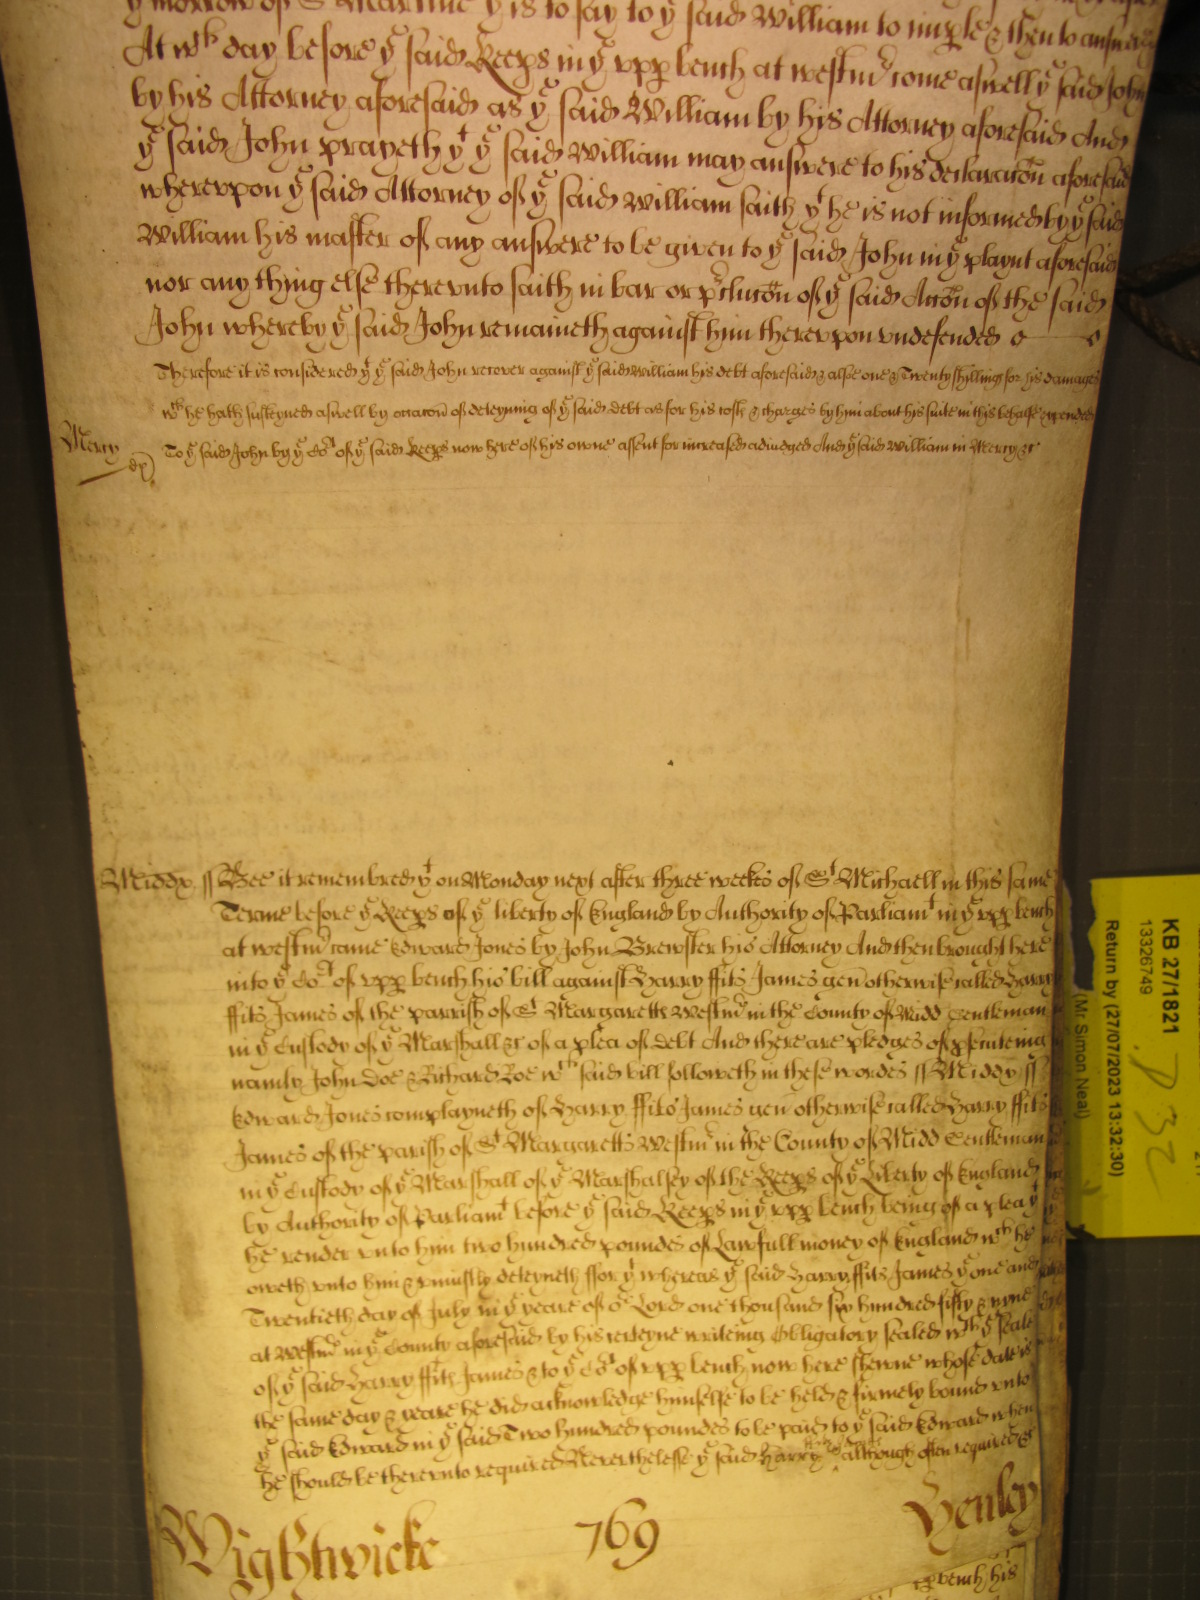 yͤ morrow of Sᵗ Martine yᵗ is to say to yͤ said William to imple & then to answere
At wᶜʰ day before yͤ said Keeps in yͤ upp bench at westmʳ come aswell yͤ said John
by his Attorney aforesaid as yͤ said William by his Attorney aforesaid And
yͤ said John prayeth yᵗ yͤ said William may answere to his declaracōn aforesaid
wherevpon yͤ said Attorney of yͤ said William saith yᵗ he is not informed by yͤ said
William his master of any answere to be given to yͤ said John in yͤ playnt aforesaid
nor any thing else therevnto saith in bar or pͬclucōn of yͤ said Accōn of the said
John whereby yͤ said John remaineth against him therevpon vndefended
Therefore it is considered yᵗ yͤ said John recover against yͤ said William his debt aforesaid & alsoe one & Twenty shillings for his damages
wᶜʰ he hath susteyned aswell by occacōn of deteyning of yͤ said debt as for his costs & charges by him about his suite in this behalfe expended
Mercy
To yͤ said John by yͤ Coʳᵗ of yͤ said Keeps now here of his owne assent for increase adiudged And yͤ said William in Mercy &c
Middx ss Bee it remembred yᵗ on Monday next after three weekes of Sᵗ Michaell in this same
Terme before yͤ Keeps of yͤ liberty of England by Authority of Parliamᵗ in yͤ upp bench
at westmʳ came Edward Jones by John Brewster his Attorney And then brought here
into yͤ Coʳᵗ of upp bench his bill against Harry ffits James gen otherwise called Harry
ffits James of the parrish of Sᵗ Margaretts westmʳ in the County of Midd Gentleman
in yͤ Custody of yͤ Marshall &c of a plea of debt And there are pledges of psecuteing
namly John Doe & Richard Roe wᶜʰ said bill followeth in these wordes ss Middx ss
Edward Jones complayneth of Harry ffits James gen otherwise called Harry ffits
James of the parish of Sᵗ Margaretts westmʳ in the County of Midd Gentleman
in yͤ Custody of yͤ Marshall of yͤ Marshalsey of the Keeps of yͤ Liberty of England
by Authority of Parliamᵗ before yͤ said Keeps in yͤ upp bench being of a plea yᵗ
he render vnto him two hundred poundes of Lawfull money of England wᶜʰ he
oweth vnto him & vniustly deteyneth ffor yᵗ whereas yͤ said Harry ffits James yͤ one and
Twentieth day of July in yͤ yeare of oʳ Lord one thousand six hundred fifty & nyne
at Westmʳ in yͤ County aforesaid by his certeyne writeing Obligatory sealed wᵗʰ yͤ seale
of yͤ said Harry ffits James & to yͤ Coʳᵗ of upp bench now here shewne whose date is
the same day & yeare he did acknowledge himselfe to be held & firmely bound vnto
yͤ said Edward in yͤ said Two hundred poundes to be paid to yͤ said Edward when
he should be therevnto required Neverthelesse yͤ said Harry although often required &c
Wightwicke 769 Henley
upp bench his
KB 27/1821
13326749
Return by (27/07/2023 13:32:30)
(Mr Simon Neal)